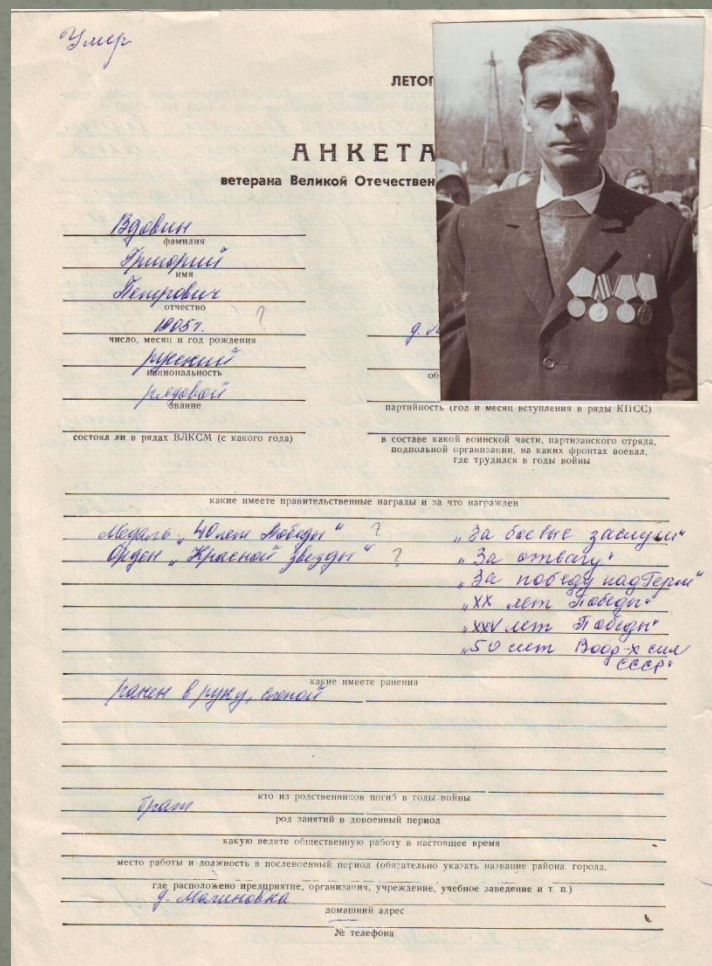 Умер
ЛЕТОП
АНКЕТА
ветерана Великой Отечествен
Вдовин
фамилия
Григорий
имя
Петрович
отчество
1905г. ?
число, месяц и год рождения
русский
национальность
рядовой
звание
состоял ли в рядах ВЛКСМ (с какого года)
д.
об
партийность (год и месяц вступления в ряды КПСС)
в составе какой воинской части, партизанского отряда,
подпольной организации, на каких фронтах воевал,
где трудился в годы войны
какие имеете правительственные награды и за что награжден
Медаль „40 лет Победы“ ?
Орден „Красной звезды“ ?
„За боевые заслуги“
„За отвагу“
„За победу над Герм“
„XX лет Победы“
„XXV лет Победы“
„50 лет Воор-х сил
СССР“
какие имеете ранения
ранен в руку, слепой
кто из родственников погиб в годы войны
брат
род занятий в довоенный период
какую ведете общественную работу в настоящее время
место работы и должность в послевоенный период (обязательно указать название района, города,
где расположено предприятие, организация, учреждение, учебное заведение и т. п.)
д. Малиновка
домашний адрес
№ телефона